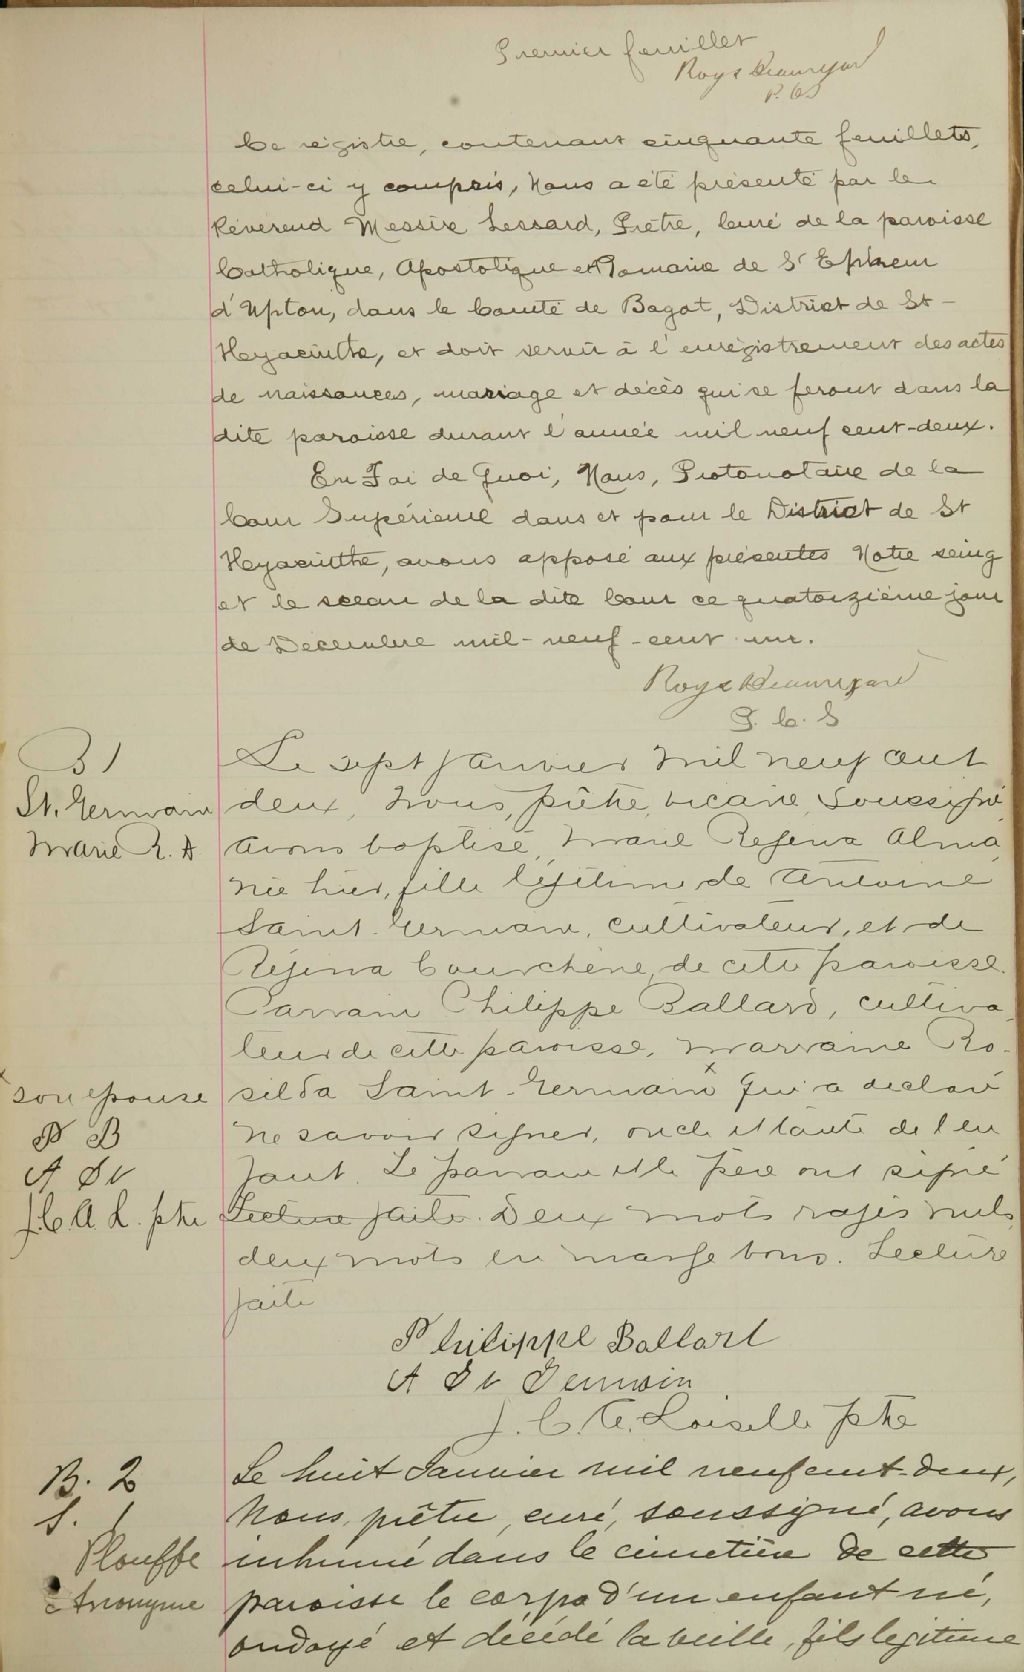 Premier feuillet
Roy & Beauregard
P. C. S
Ce régistre, contenant cinquante feuillets,
celui-ci y compris, Nous a été présenté par le
Révérend Messire Lessard, Prêtre, Curé de la paroisse
Catholique, Apostolique et Romaine de St Ephrem
d'Upton, dans le Comté de Bagot, District de St-
Hyacinthe, et doit servir à l'enregistrement des actes
de naissances, mariage et décès qui se feront dans la
dite paroisse durant l'année mil neuf cent-deux.
En Foi de Quoi, Nous, Protonotaire de la
Cour Supérieure dans et pour le District de St
Hyacinthe, avons apposé aux présentes Notre seing
et le sceau de la dite Cour ce quatorzième jour
de Décembre mil-neuf-cent-un.
Roy & Beauregard
P. C. S
B 1
St. Germain
Marie R. A
Le sept Janvier mil neuf cent
deux, nous, prêtre, vicaire, soussigné,
avons baptisé, Marie Régina Alma,
née hier, fille légitime de Antoine
Saint-Germain, cultivateur, et de
Régina Courchène, de cette paroisse.
Parrain Philippe Ballard, cultiva-
teur de cette paroisse, marraine Ro-
silda Saint-Germain x qui a déclaré
x son épouse
ne savoir signer, oncle et tante de l'en
P B
fant. Le parrain et le père ont signé
A St
Lecture faite. Deux mots rayés nuls,
J.C.A. L. ptre
deux mots en marge bons. Lecture
faite
Philippe Ballard
A St Germain
J. C. A. Loiselle ptre
B. 2
S. 1
Plouffe
Anonyme
Le huit Janvier mil neuf cent-deux,
Nous, prêtre, curé, soussigné, avons
inhumé dans le cimetière de cette
paroisse le corps d'un enfant né,
ondoyé et décédé la veille, fils légitime